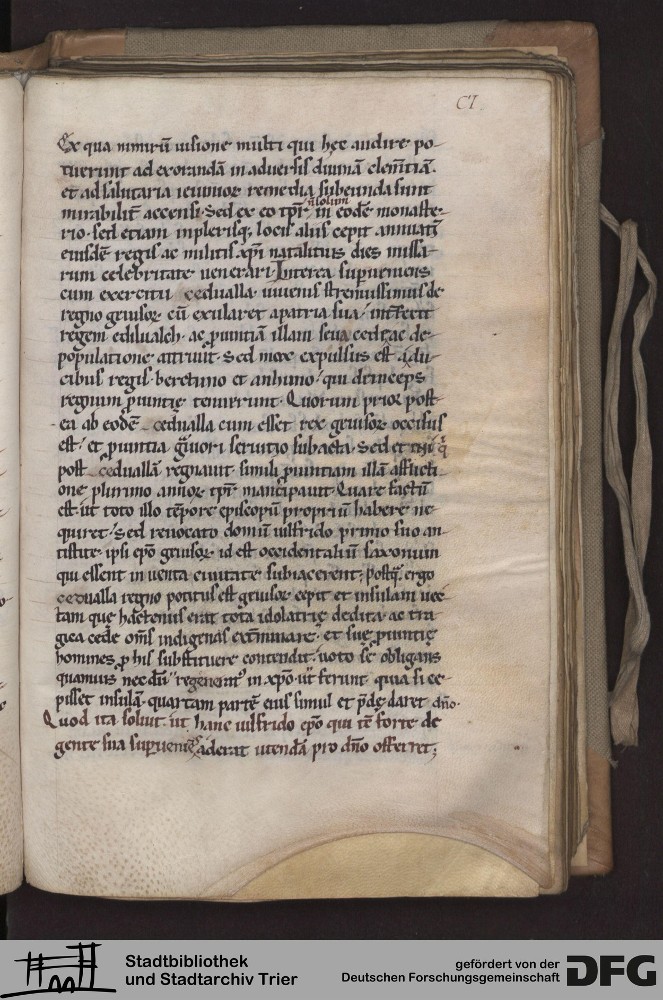 CI
Ex qua nimirũ uisione multi qui hęc audire po-
tuerunt ad exorandã in aduersis diuinã clem̃tiã.
et ad salutaria ieiunior̃ remedia subeunda sunt
mirabilit̃ accensi. Sed ex eo tp̃r ñ solum in eodẽ monaste-
rio. sed etiam in plerisq; locis aliis cepit annuatĩ
eiusdẽ regis ac militis xp̃i natalitius dies missa-
rum celebritate uenerari. Interea superueniens
cum exercitu cedualla. iuuenis strenuissimus de
regno geuisor̃ cũ exularet a patria sua / interfecit
regem ediluualch. ac prouintiã illam seua cede ac de-
populatione attriuit. Sed mox expulsus est a du-
cibus regis. berctuno et anhuno / qui deinceps
regnum prouintię tenuerunt. Quorum prior post-
ea ab eodẽ cedualla cum esset rex geuisor̃ occisus
est / et prouintia grauiori seruitio subacta. Sed et
post ceduallã regnauit simili prouintiam illã afflicti-
one plurimo annor̃ tp̃r mancipauit. Quare factũ
est. ut toto illo tẽpore episcopũ propriũ habere ne-
quiret / Sed reuocato domũ uilfrido primo suo an-
tistite. ipsi ep̃o geuisor̃ id est occidentaliũ saxonum
qui essent in uenta ciuitate subiacerent; postq̃ ergo
cedualla regno potitus est geuisor̃ cepit et insulam uec-
tam que hactenus erat tota idolatrię dedita. ac tra-
gica cede om̃s indigenas exterminare. et suę prouintię
homines pro his substituere contendit. uoto se obligans
quamuis necdũ regenerat' in xp̃o. ut ferunt. quia si ce-
pisset insulã. quartam partẽ eius simul et p̃dę daret dño.
Quod ita soluit. ut hanc uilfrido ep̃o qui tẽ forte de
gente sua superueniẽs aderat utendã pro dño offerret;
Stadtbibliothek
und Stadtarchiv Trier
gefördert von der
Deutschen Forschungsgemeinschaft
DFG